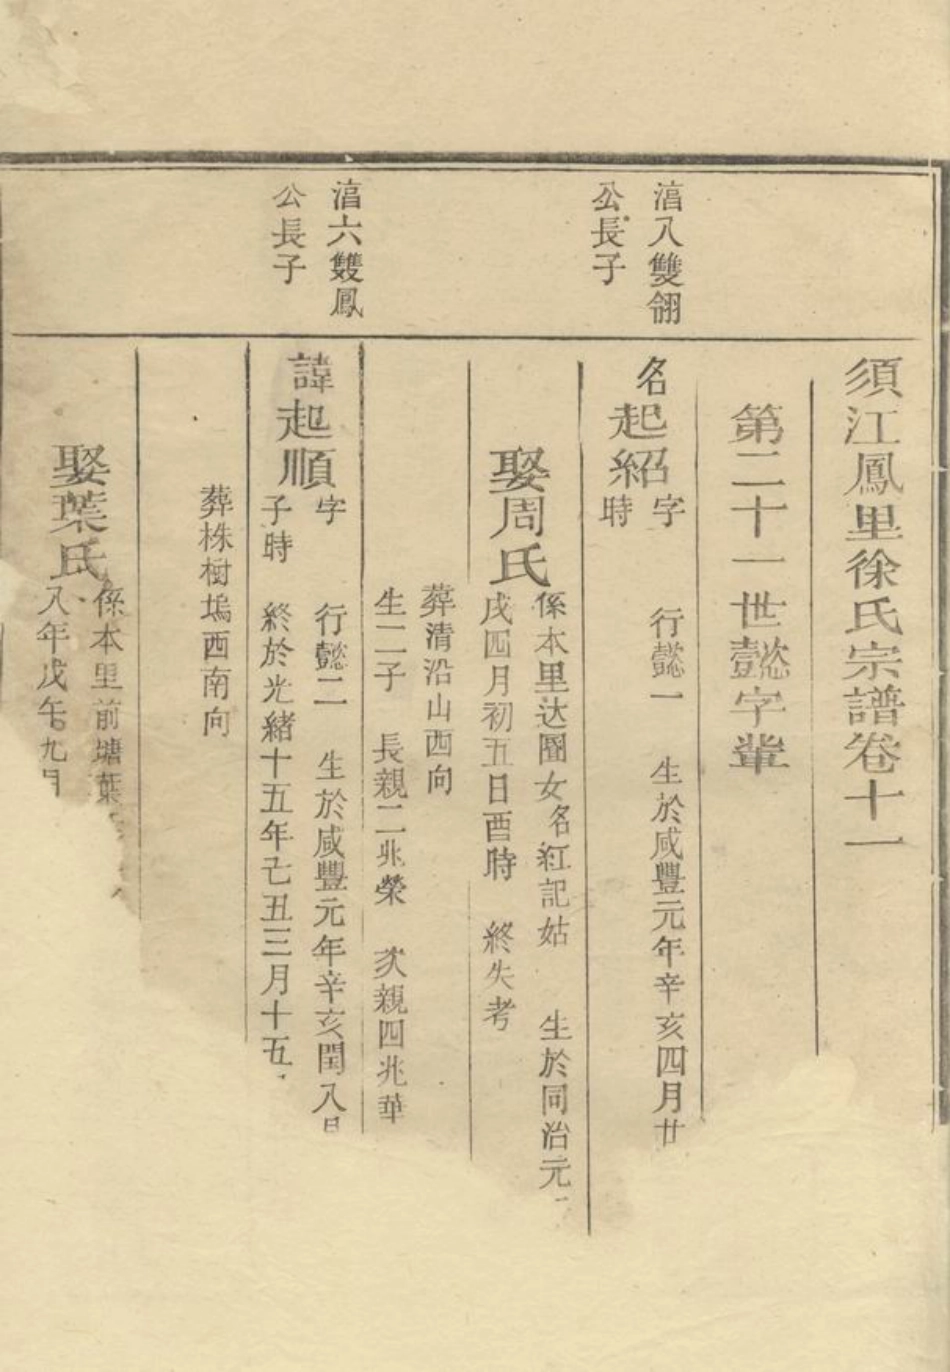 須江鳳里徐氏宗譜卷十一
第二十一世懿字輩
湻八雙翎
公長子
名起紹
字 行懿一 生於咸豐元年辛亥四月廿
時
娶周氏
係本里达圈女名紅記姑 生於同治元
戌四月初五日酉時 終失考
葬清沿山西向
生二子 長親二兆榮 次親四兆華
湻六雙鳳
公長子
諱起順
字 行懿二 生於咸豐元年辛亥閏八月
子時 終於光緒十五年己丑三月十五
葬株樹塢西南向
娶葉氏
係本里前塘葉
八年戊午九月